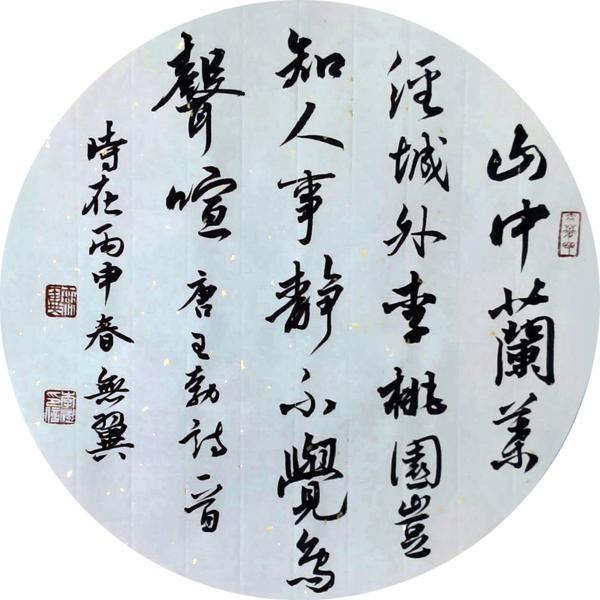 山中蘭葉
徑城外李桃園豈
知人事靜不覺鳥
聲喧唐王勃詩一首
時在丙申春無翼